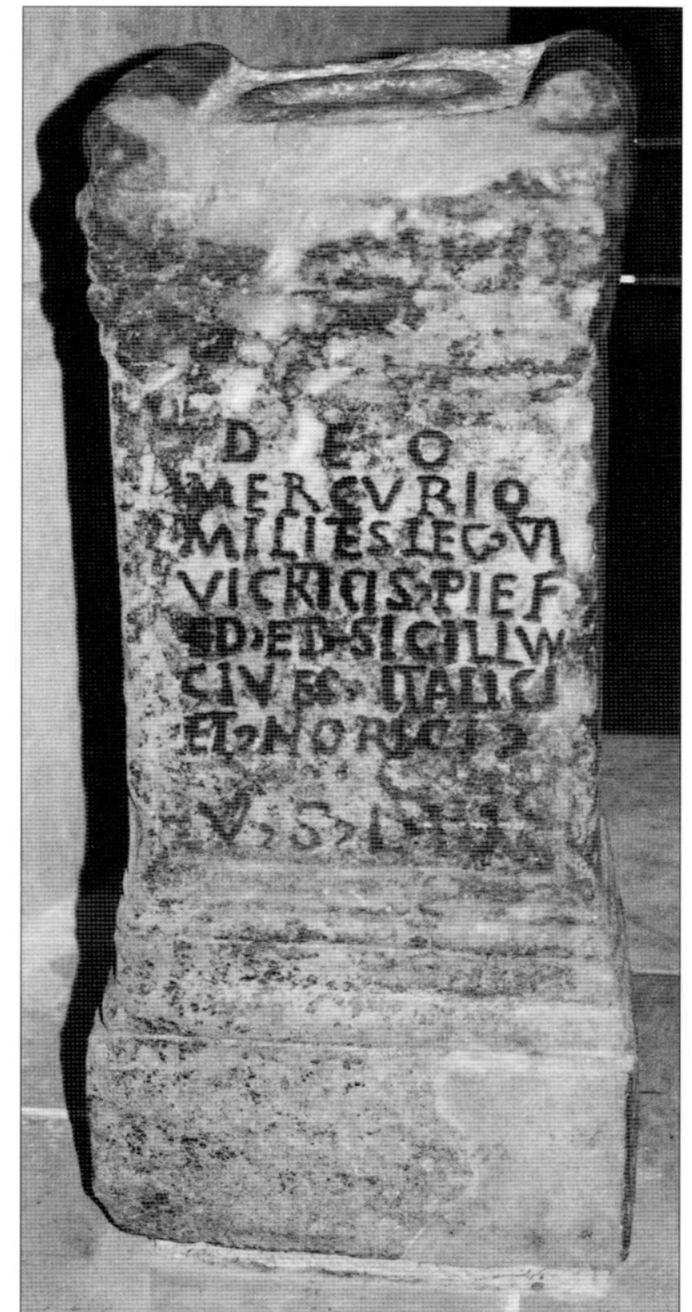 DEO
MERCVRIO
MILITES LEG VI
VICTRICIS PIE F
ED ET SIGILLVM
CIVES ITALICI
ET NORICI
V S L